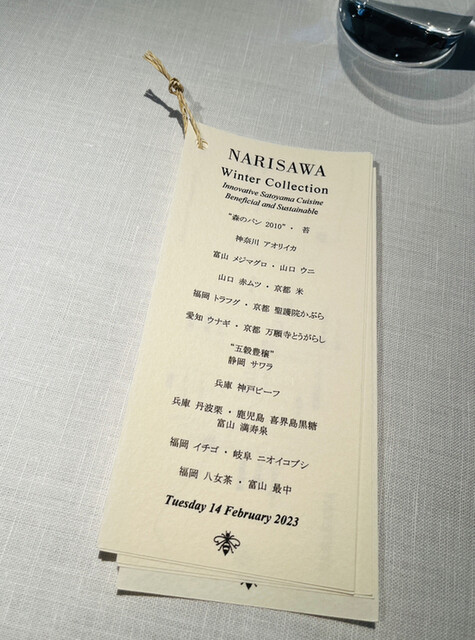 NARISAWA
Winter Collection
Innovative Satoyama Cuisine
Beneficial and Sustainable
“森のパン 2010”・ 苔
神奈川 アオリイカ
富山 メジマグロ・山口 ウニ
山口 赤ムツ・京都 米
福岡 トラフグ・京都 聖護院かぶら
愛知 ウナギ・京都 万願寺とうがらし
“五穀豊穣”
静岡 サワラ
兵庫 神戸ビーフ
兵庫 丹波栗・鹿児島 喜界島黒糖
富山 満寿泉
福岡 イチゴ・岐阜 ニオイコブシ
福岡 八女茶・富山 最中
Tuesday 14 February 2023